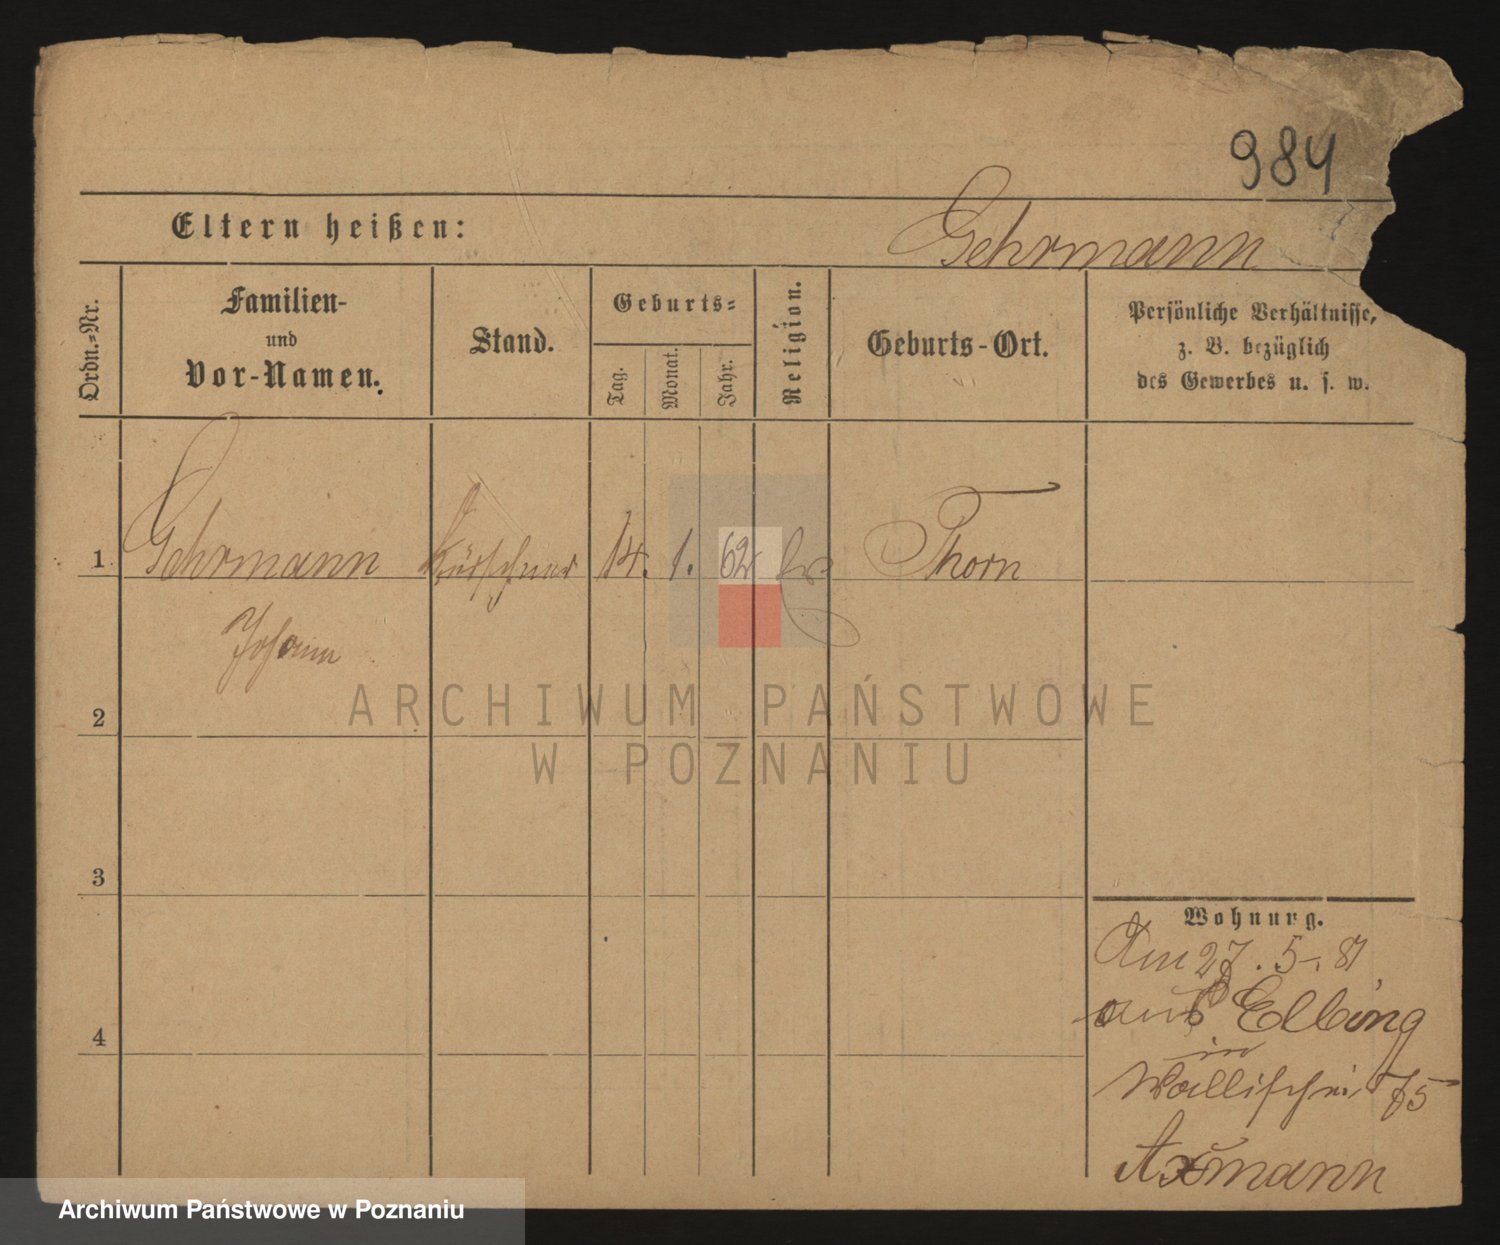 984
Eltern heißen:
Gehrmann
Ordn.-Nr.
Familien-
und
Vor-Namen.
Stand.
Geburts-
Tag.
Monat.
Jahr.
Religion.
Geburts-Ort.
Persönliche Verhältnisse,
z. B. bezüglich
des Gewerbes u. s. w.
1 Gehrmann Kürschner 14. 1. 62 Thorn
Johann
2
3
4
Wohnung.
Am 27. 5. 81
aus Elbing
in
Wallischei 75
Axmann
ARCHIWUM PAŃSTWOWE
W POZNANIU
Archiwum Państwowe w Poznaniu